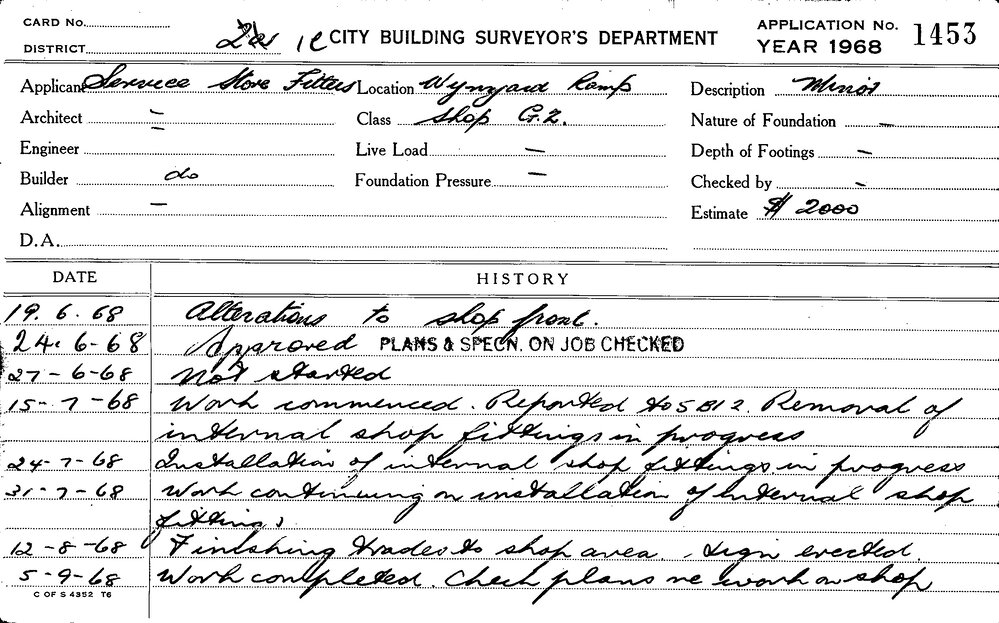 CARD No.
DISTRICT
CITY BUILDING SURVEYOR'S DEPARTMENT
APPLICATION No. 1453
YEAR 1968
Applicant Service Store Fitters
Location Wynyard Ramp
Description Minor
Architect —
Class Shop G.2.
Nature of Foundation —
Engineer —
Live Load —
Depth of Footings —
Builder do
Foundation Pressure —
Checked by -
Alignment —
Estimate $ 2000
D.A.
DATE HISTORY
19. 6. 68 Alterations to shop front.
24. 6-68 Approved PLANS & SPECN. ON JOB CHECKED
27-6-68 Not started
15-7-68 Work commenced. Reported to SBI 2. Removal of
internal shop fittings in progress
24-7-68 Installation of internal shop fittings in progress
31-7-68 Work continuing on installation of internal shop
fittings
12-8-68 Finishing trades to shop area. Sign erected.
5-9-68 Work completed. Check plans re work on shop
C OF S 4352 T6